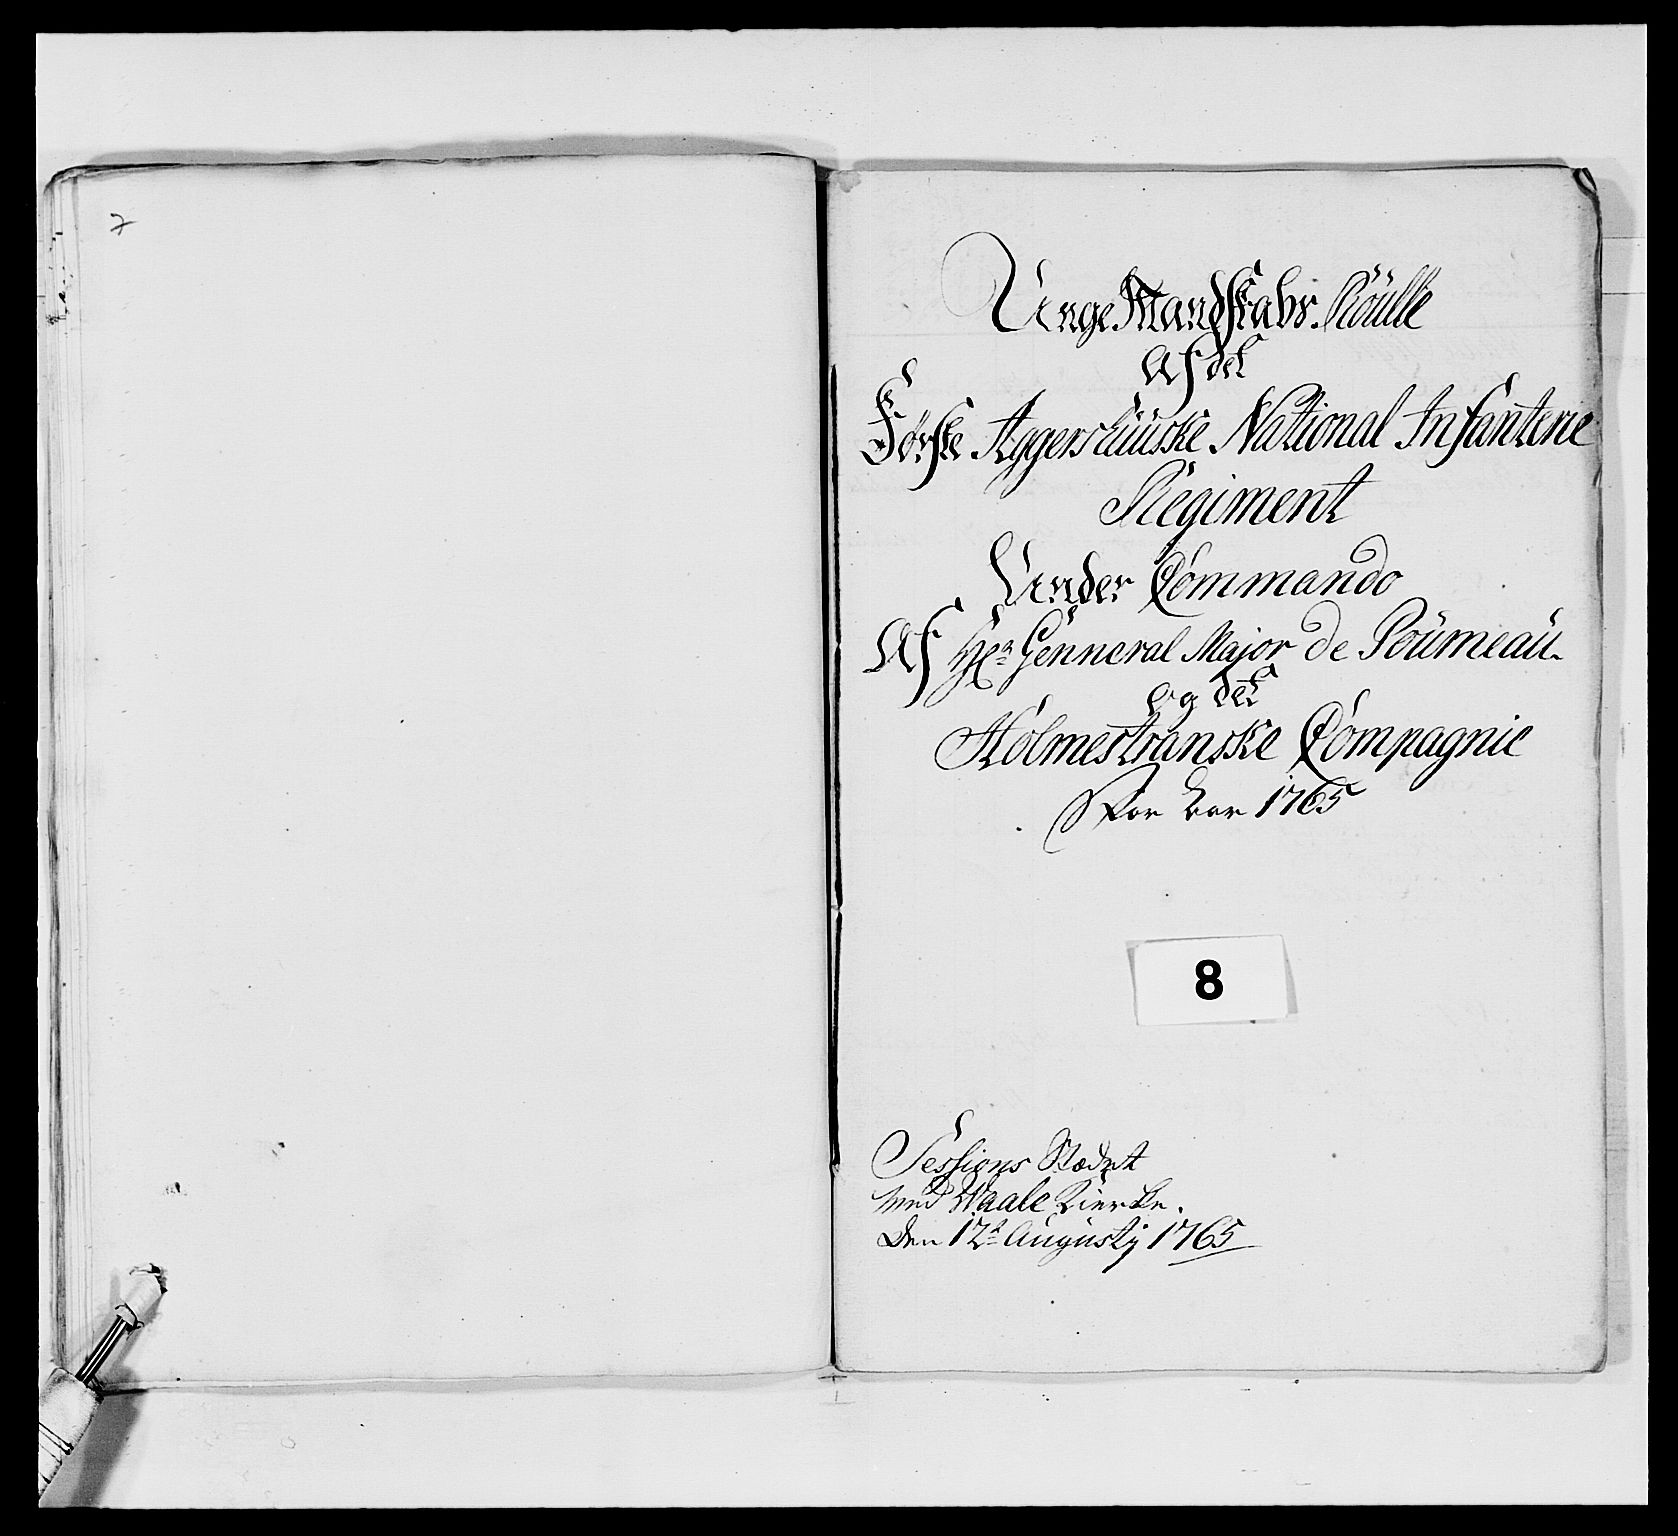 7
Unge Mandskabs. Roülle
Af det
Førske Aggershüüske National Infanterie
Regiment
Under Commando
Af Hr Genneral Major de Poümeaü.
og det
Holmestranske Compagnie
Por Aar 1765
8
Sessions Stædet
ved Waale Kierke.
Den 12te Augustij 1765